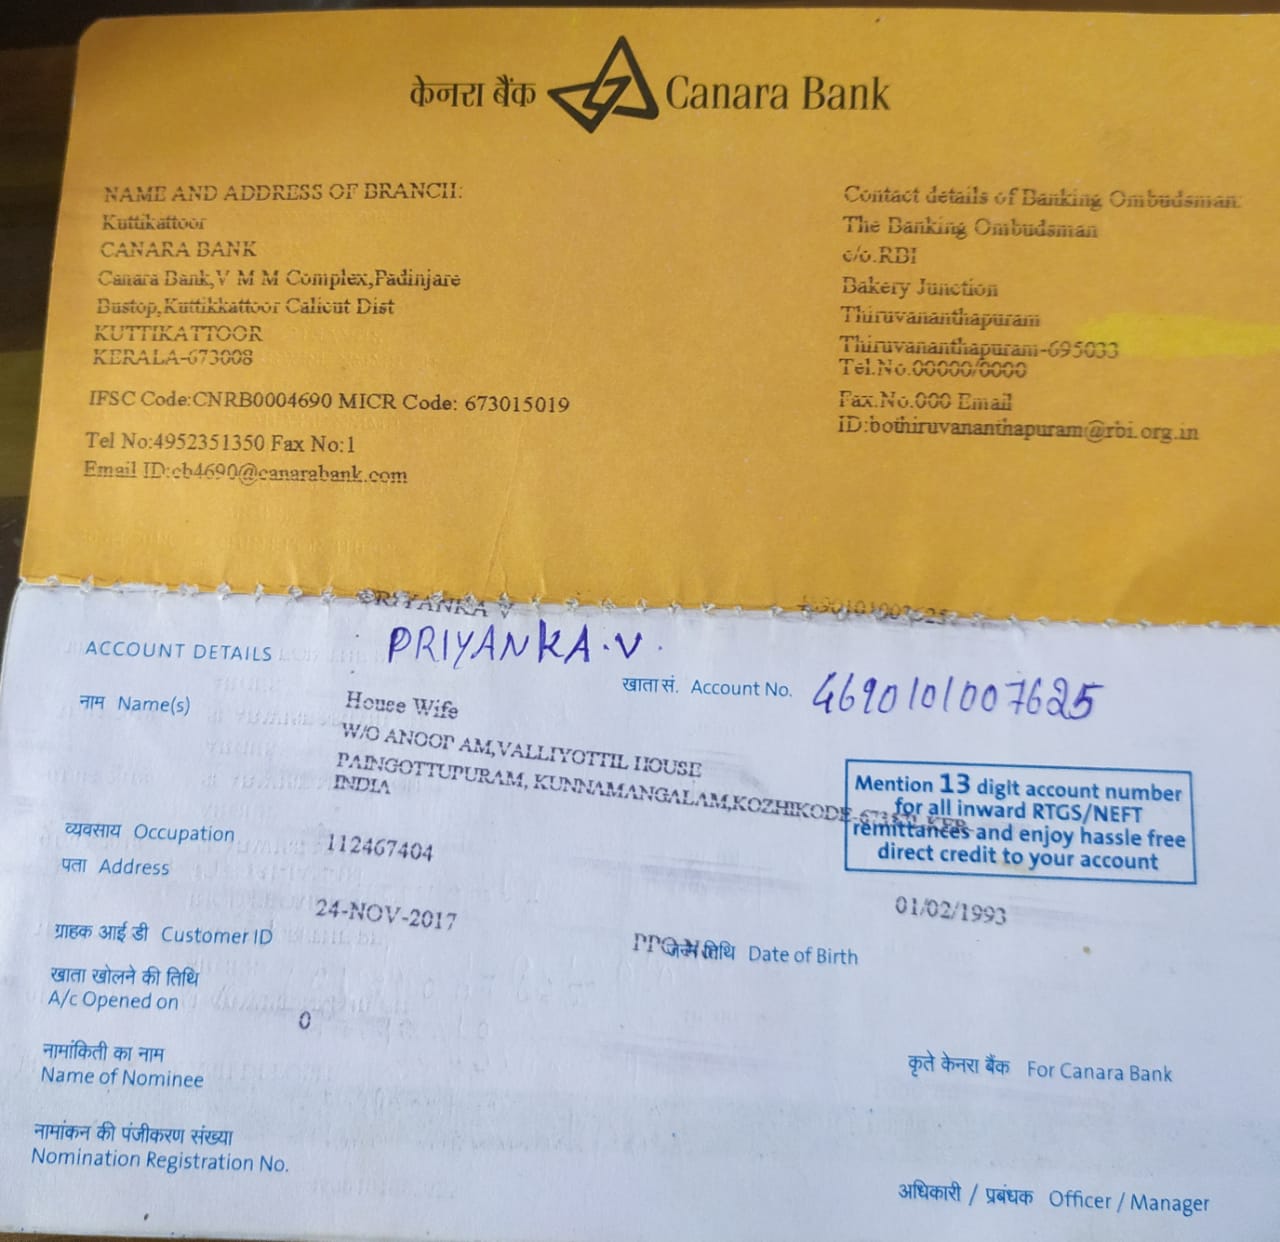 केनरा बैंक Canara Bank
NAME AND ADDRESS OF BRANCH:
Kuttikattoor
CANARA BANK
Canara Bank,V M M Complex,Padinjare
Bustop,Kuttikkattoor Calicut Dist
KUTTIKATTOOR
KERALA-673008
IFSC Code:CNRB0004690 MICR Code: 673015019
Tel No:4952351350 Fax No:1
Email ID:cb4690@canarabank.com
Contact details of Banking Ombudsman.
The Banking Ombudsman
c/o.RBI
Bakery Junction
Thiruvananthapuram
Thiruvananthapuram-695033
Tel.No.00000/0000
Fax.No.000 Email
ID:bothiruvananthapuram@rbi.org.in
PRIYANKA V
ACCOUNT DETAILS
PRIYANKA.V.
खाता सं. Account No. 4690101007625
नाम Name(s)
House Wife
W/O ANOOP AM,VALLIYOTTIL HOUSE
PAINGOTTUPURAM, KUNNAMANGALAM,KOZHIKODE
INDIA
Mention 13 digit account number
for all inward RTGS/NEFT
remittances and enjoy hassle free
direct credit to your account
व्यवसाय Occupation
112467404
पता Address
24-NOV-2017
01/02/1993
ग्राहक आई डी Customer ID
जन्म तिथि Date of Birth
खाता खोलने की तिथि
A/c Opened on
0
नामांकिती का नाम
Name of Nominee
कृते केनरा बैंक For Canara Bank
नामांकन की पंजीकरण संख्या
Nomination Registration No.
अधिकारी / प्रबंधक Officer / Manager